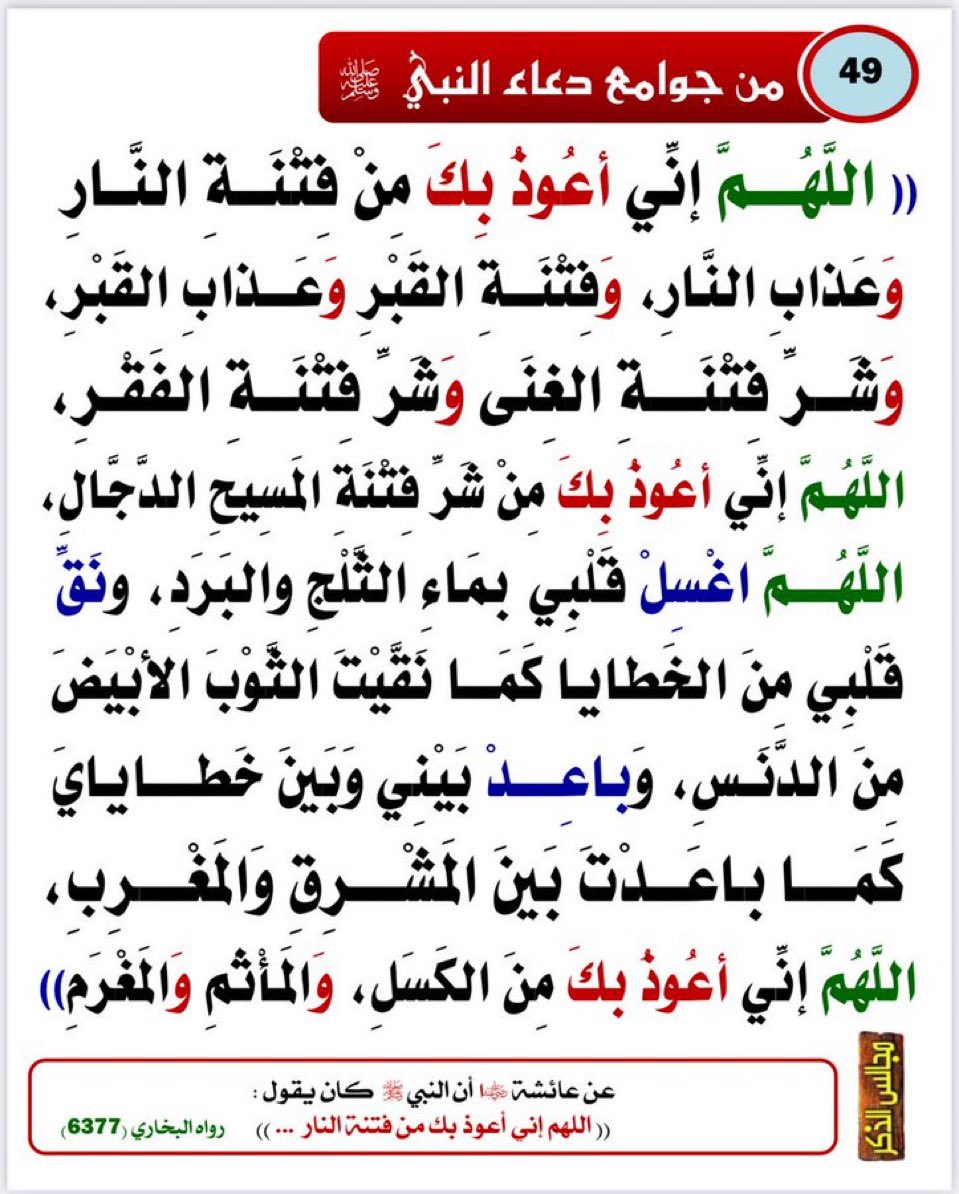 49
من جوامع دعاء النبي ﷺ
(( اللَّهُـــمَّ إنِّي أعُوذُ بِكَ مِنْ فِتْنَـــةِ النَّـــارِ
وَعَذابِ النَّارِ، وَفِتْنَـــةِ القَبْرِ وَعَـــذابِ القَبْرِ،
وَشَـــرِّ فِتْنَـــةِ الغِنَى وَشَرِّ فِتْنَـــةِ الفَقْـــرِ،
اللَّهُمَّ إنِّي أعُوذُ بِكَ مِنْ شَرِّ فِتْنَةِ المَسِيحِ الدَّجَّالِ،
اللَّهُـــمَّ اغْسِلْ قَلْبِي بمَاءِ الثَّلْجِ والبَرَدِ، ونَقِّ
قَلْبِي مِنَ الخَطايا كَمَـــا نَقَّيْتَ الثَّوْبَ الأبْيَضَ
مِنَ الدَّنَسِ، وَباعِـــدْ بَيْنِي وَبَينَ خَطـــايايَ
كَمَـــا باعَـــدْتَ بَينَ المَشْـــرِقِ وَالمَغْـــرِبِ،
اللَّهُمَّ إنِّي أعُوذُ بكَ مِنَ الكَسَلِ، وَالمَأْثمِ وَالمَغْرَمِ))
مجالس الذكر
عن عائشة رضي الله عنها أن النبي ﷺ كان يقول :
(( اللهم إني أعوذ بك من فتنة النار ... )) رواه البخاري (6377)